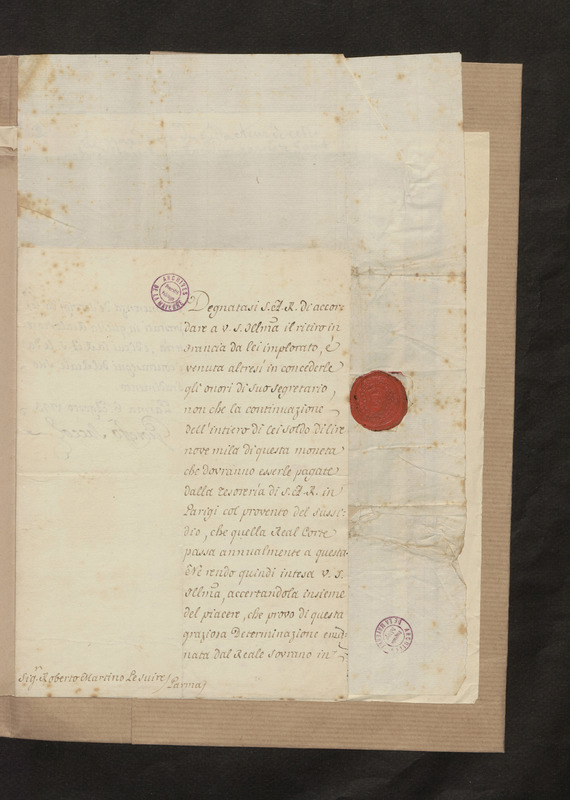 Degnatasi S. A. R. di accor-
dare a V. S. Illma il ritiro in
Francia da lei implorato, è
venuta altresì in concederle
gli onori di suo segretario,
non che la continuazione
dell'intiero di lei soldo di lire
nove mila di questa moneta
che dovranno esserle pagate
dalla Tesoreria di S. A. R. in
Parigi col provento del sussi-
dio, che quella Real Corte
passa annualmente a questa.
Ne rendo quindi intesa V. S.
Illma, accertandola insieme
del piacere, che provo di questa
graziosa Determinazione ema-
nata dal Reale Sovrano in
Sigr. Roberto Martino Lesuire / Parma
ARCHIVES
ARCHIVES